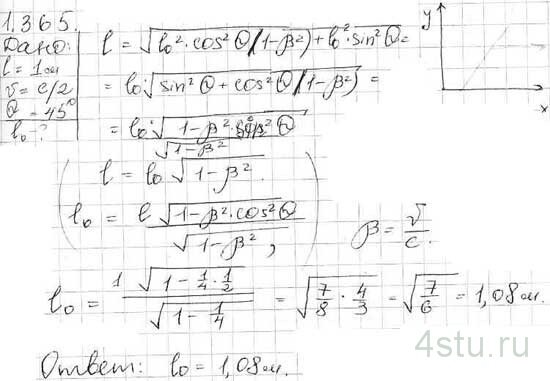 1.365.
Дано:
l = 1 м
v = c/2
Q = 45°
l₀ - ?
l = √(l₀²·cos²Q(1-β²)+l₀²·sin²Q) =
= l₀·√(sin²Q + cos²Q(1-β²)) =
= l₀·√(1-β²·cos²Q)
√(1-β²)
(l = l₀√(1-β²).
l₀ = l√(1-β²·cos²Q) / √(1-β²),)
β = v/c.
l₀ = 1√(1 - 1/4 · 1/2) / √(1 - 1/4) = √(7/8 · 4/3) = √(7/6) = 1,08 м.
Ответ: l₀ = 1,08 м.
y
x
4stu.ru